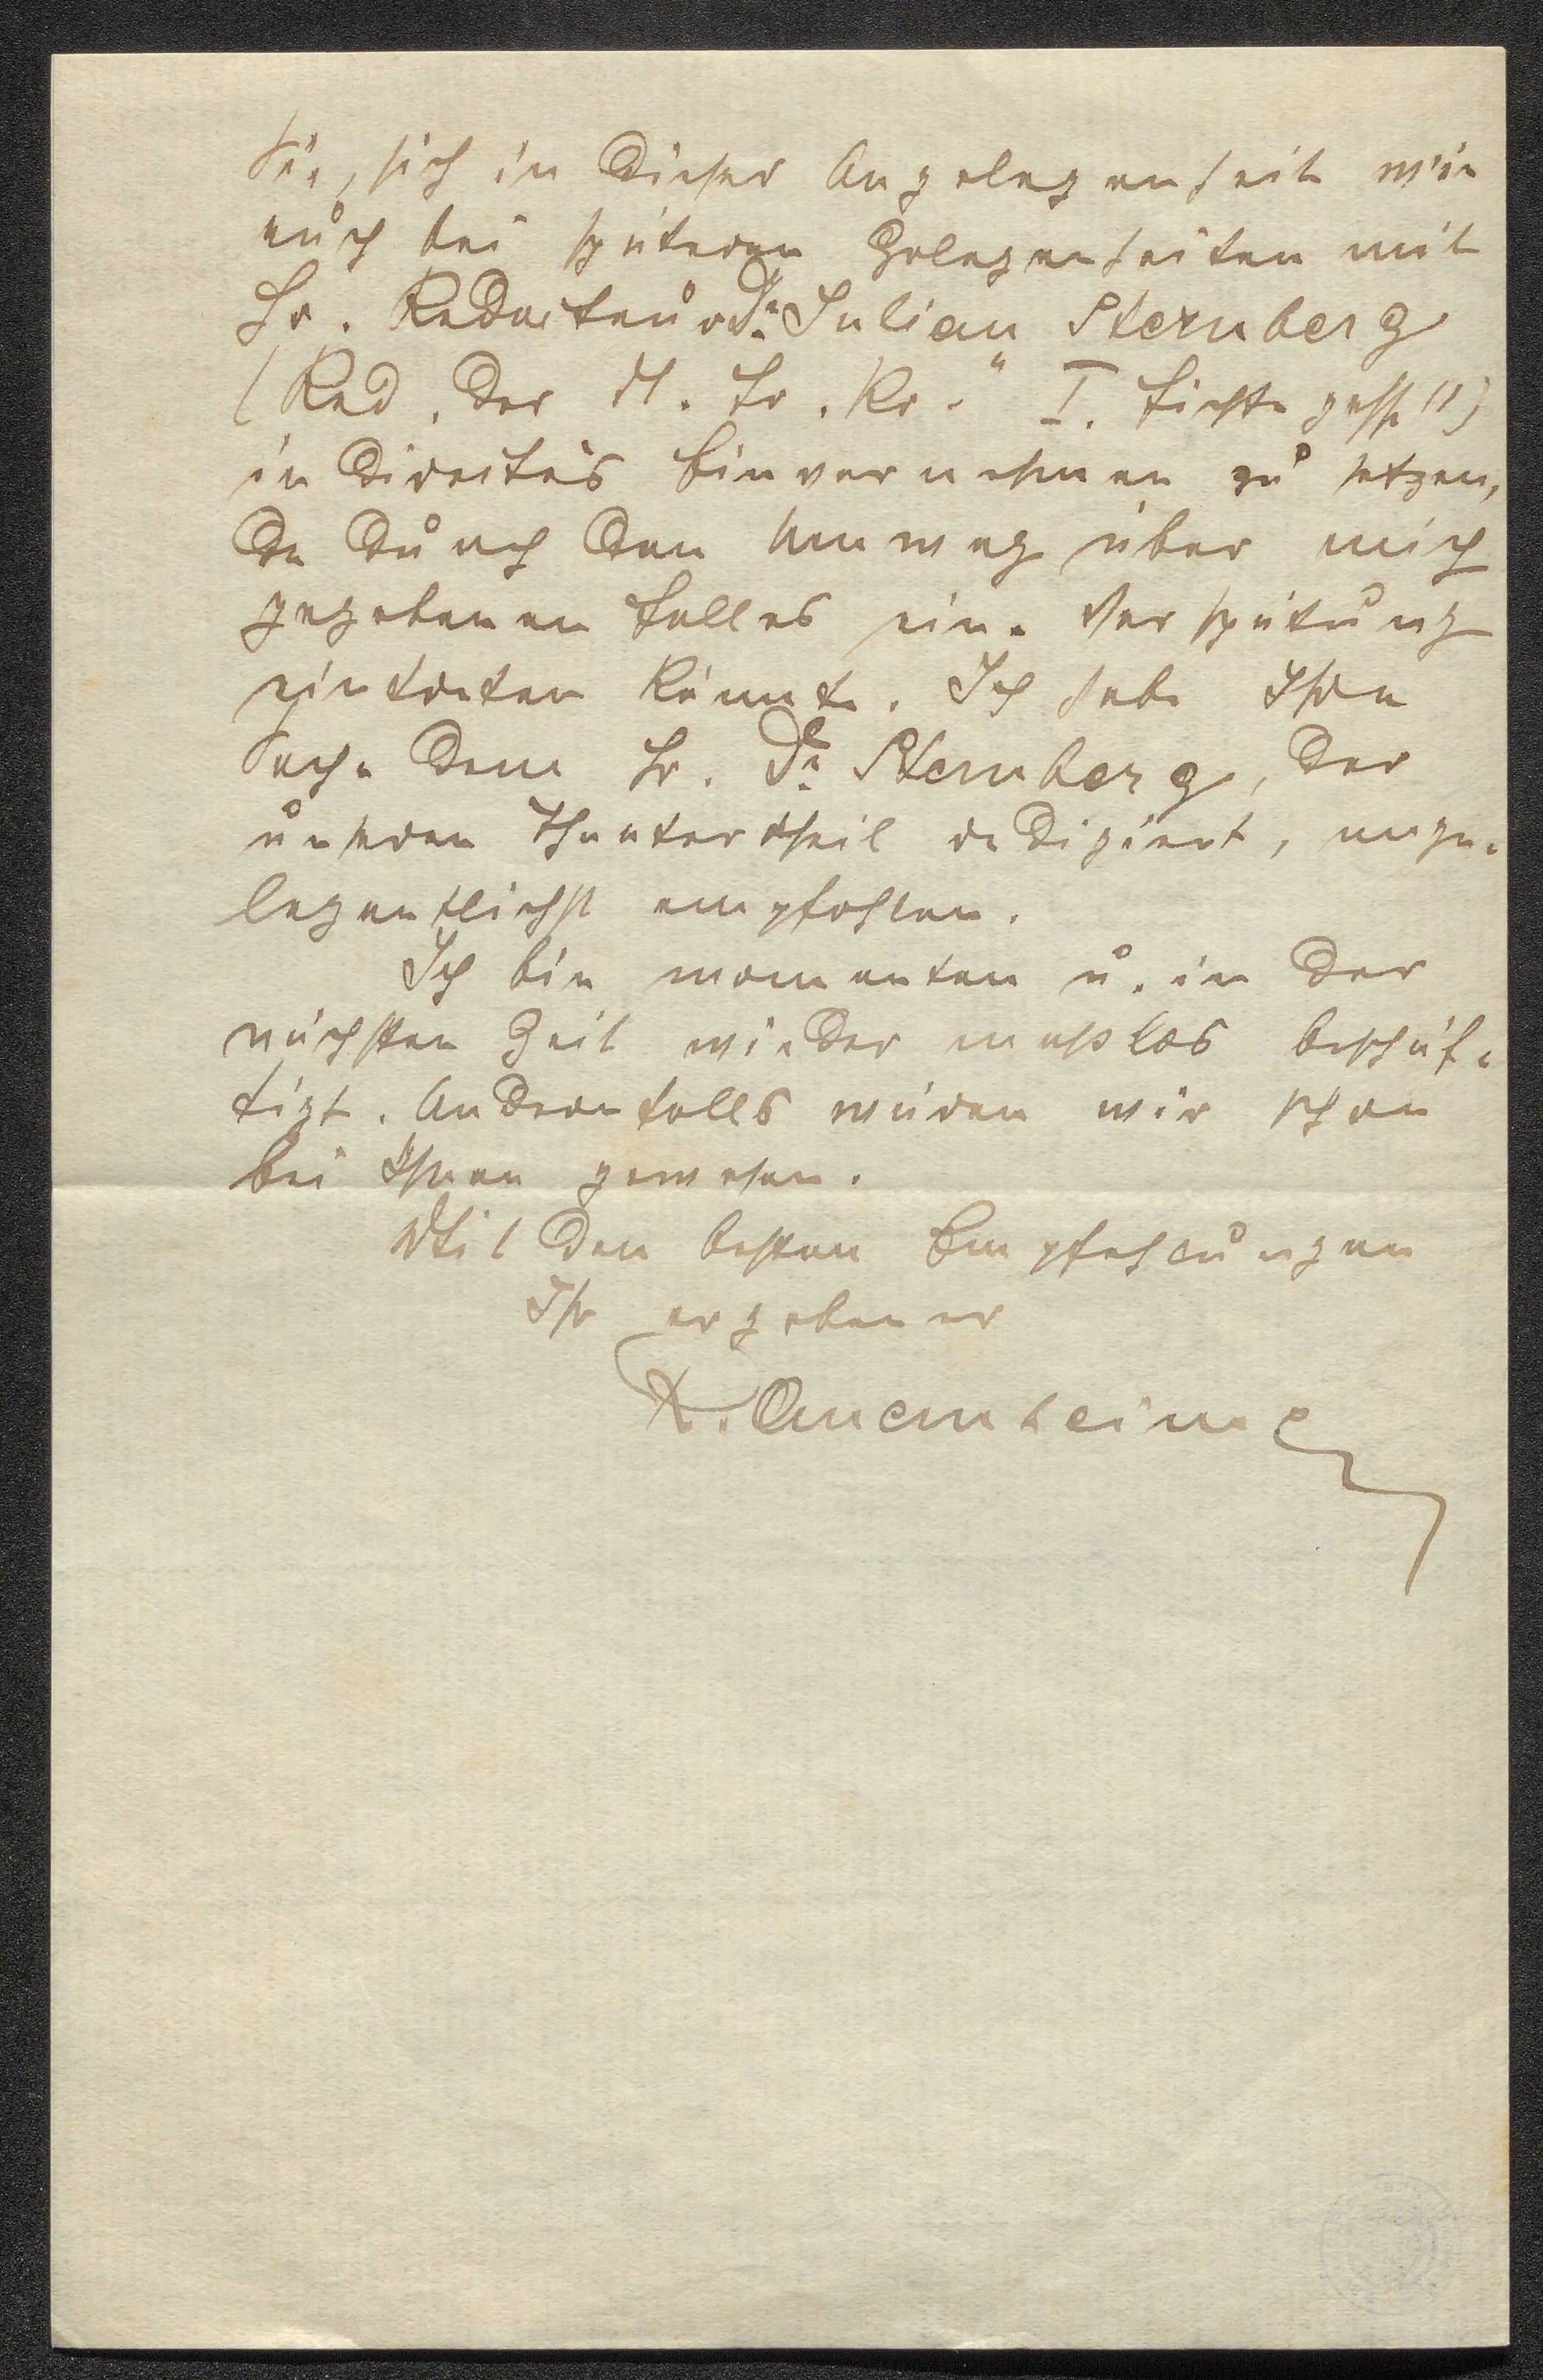 Sie, sich in dieser Angelegenheit wie
auch bei späteren Gelegenheiten mit
Hr. Redacteur Dr. Julian Sternberg
(Red. der N. Fr. Pr." I. Fichtegasse 11)
in directes Einvernehmen zu setzen,
da durch den Umweg über mich
gegebenen Falles eine Verspätung
eintreten könnte. Ich habe Ihre
Sache dem Hr. Dr. Sternberg, der
unseren Theatertheil redigiert, ange-
legentlichst empfohlen.
Ich bin momentan u. in der
nächsten Zeit wieder maßlos beschäf-
tigt. Anderenfalls wären wir schon
bei Ihnen gewesen.
Mit den besten Empfehlungen
Ihr ergebener